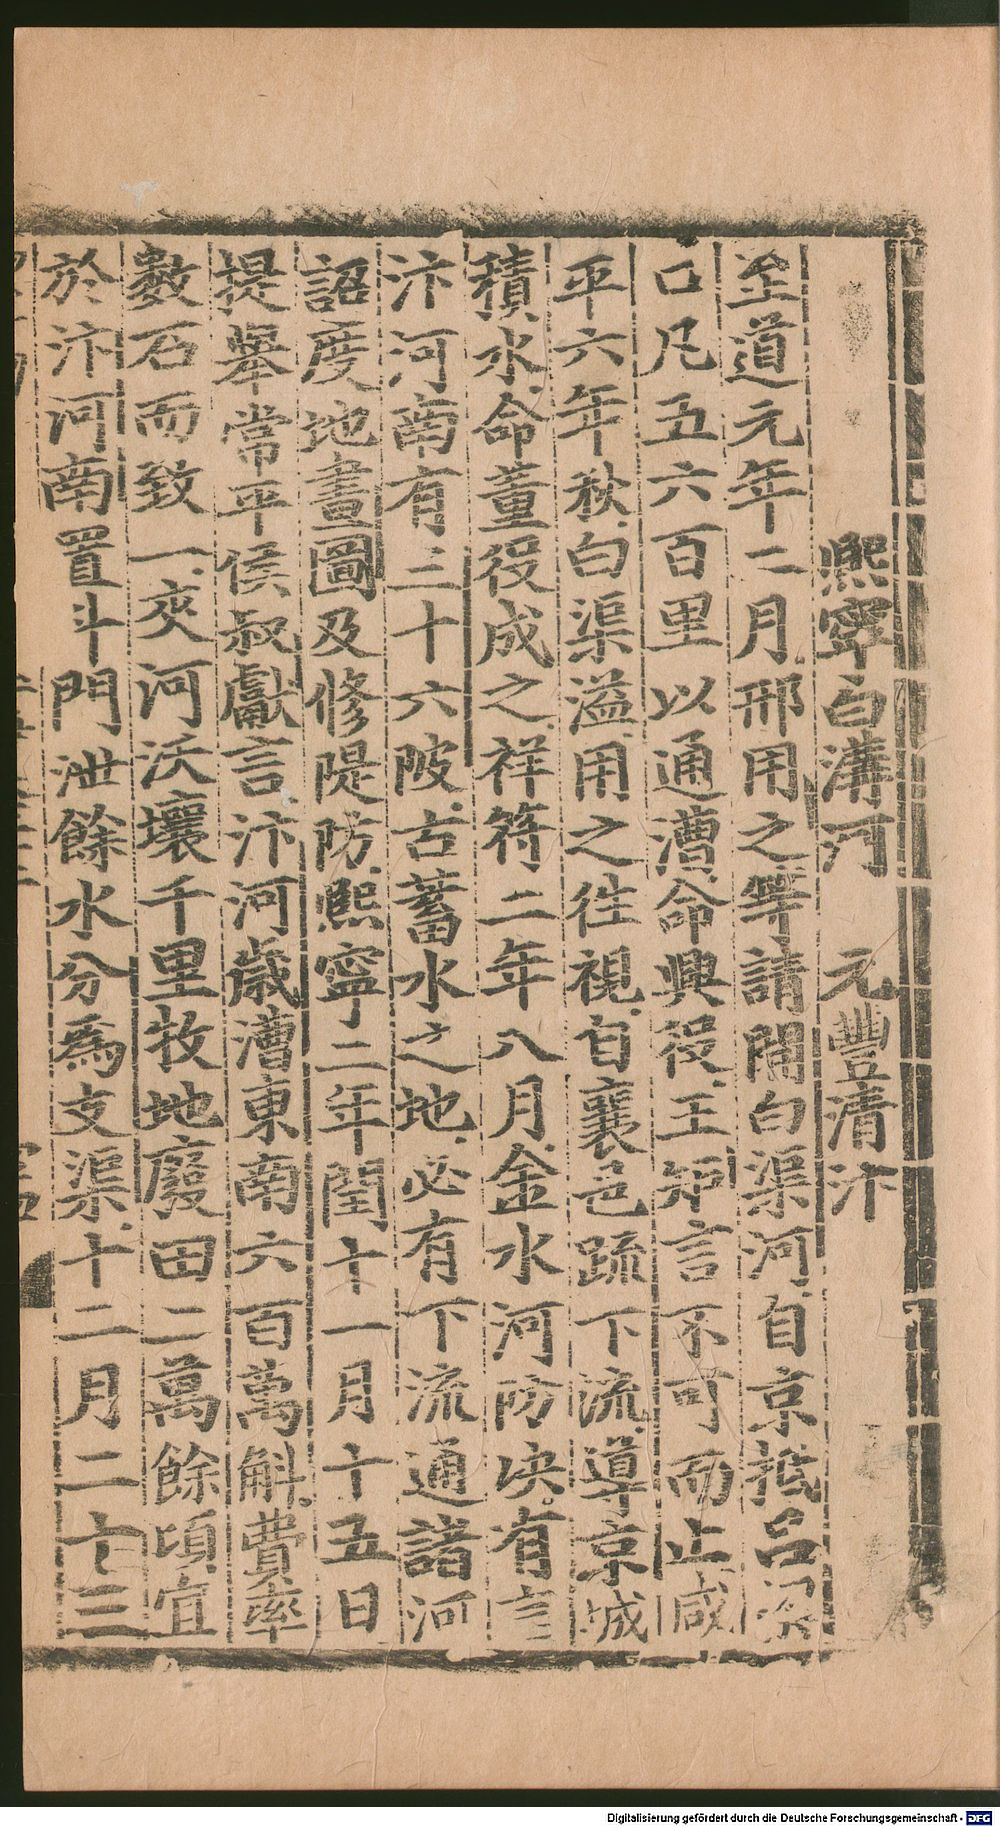 熙寧白溝河　元豐清汴
至道元年二月邢用之等請開白渠河自京抵呂梁
口凡五六百里以通漕命興役王矩言不可而止咸
平六年秋白渠溢用之往視自襄邑疏下流導京城
積水命董役成之祥符二年八月金水河防决有言
汴河南有三十六陂古蓄水之地必有下流通諸河
詔度地畫圖及修隄防熙寧二年閏十一月十五日
提舉常平侯叔獻言汴河歲漕東南六百萬斛費率
數石而致一夾河沃壤千里牧地廢田二萬餘頃宜
於汴河南置斗門泄餘水分爲支渠十二月二十三
Digitalisierung gefördert durch die Deutsche Forschungsgemeinschaft - DFG